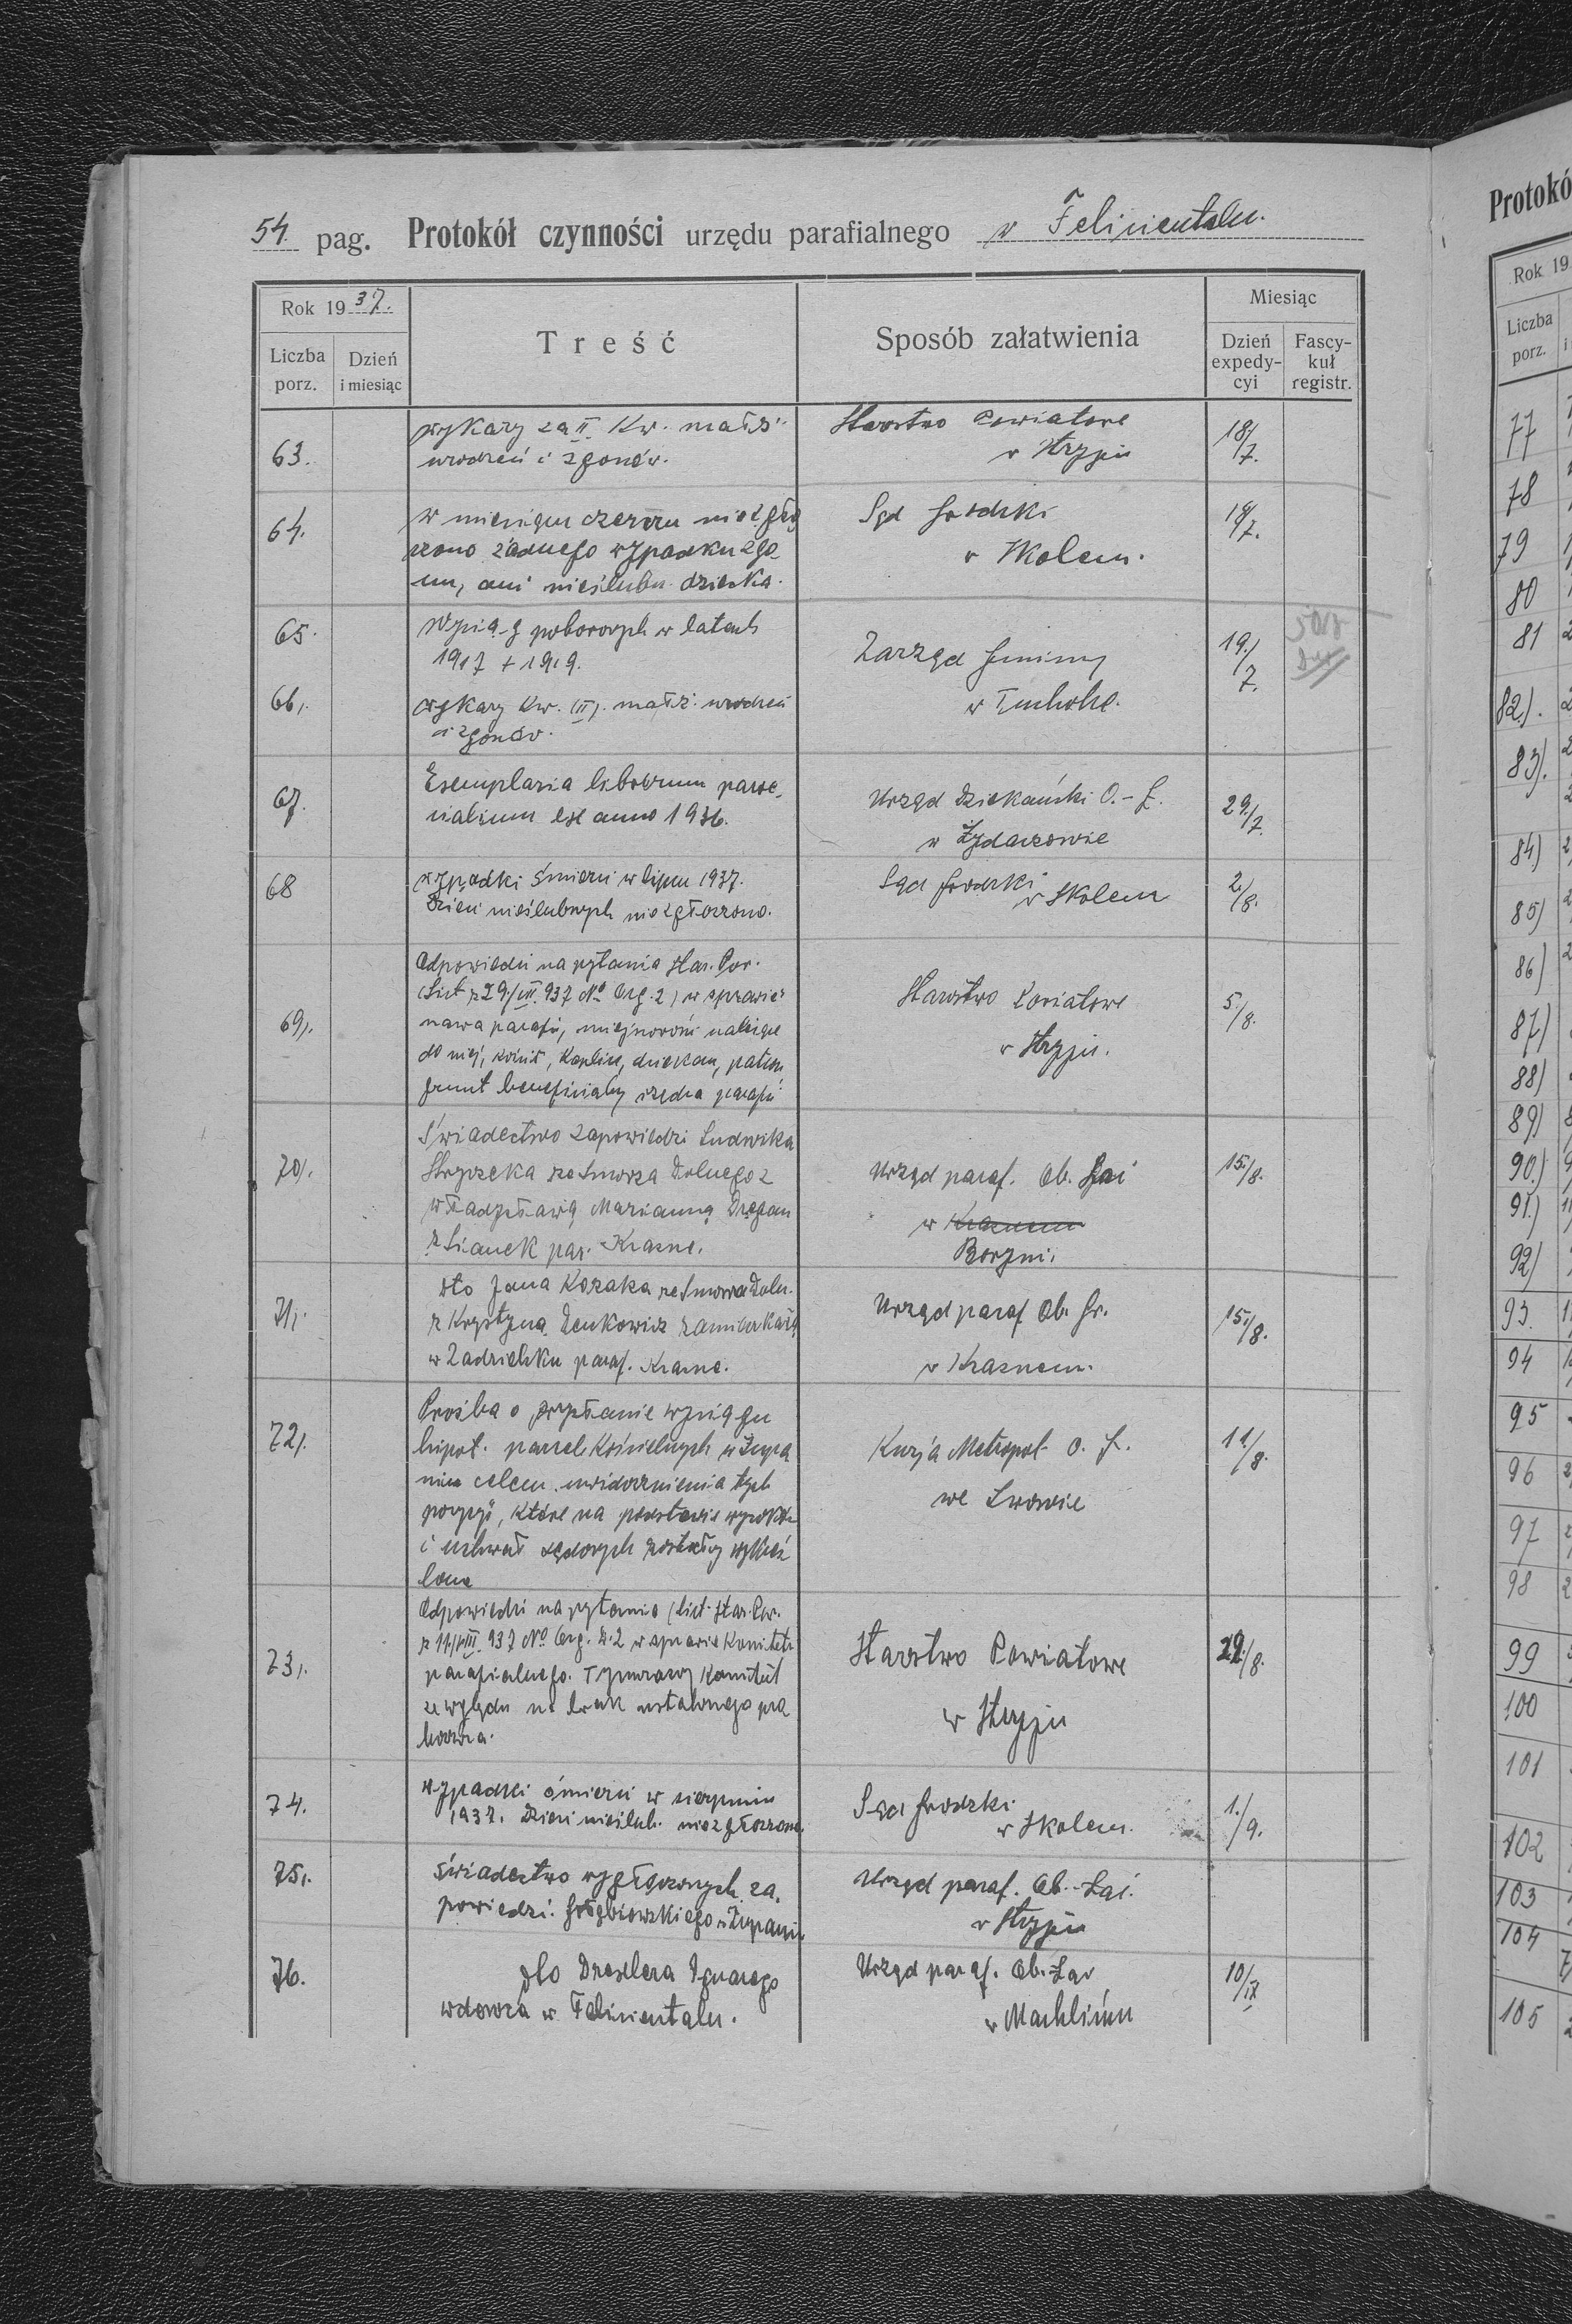 54. pag. Protokół czynności urzędu parafialnego w Felicientalu.
Rok 1937.
Treść
Sposób załatwienia
Miesiąc
Liczba porz.
Dzień i miesiąc
Dzień expedy-cyi
Fascy-kuł registr.
63.
wykazy za II. Kw. małż.
urodzeń i zgonów.
Starostwo Powiatowe
w Stryju
18/7.
64.
w miesiącu czerwcu nie zgło
szono żadnego wypadku zgo
nu, ani nieślubn. dziecka.
Sąd Grodzki
w Skolem.
19/7.
65.
Wyciąg poborowych w latach
1917 + 1919.
Zarząd Gminny
w Tucholce.
19./7.
66,.
wykazy Kw. (II). małż. urodzeń
i zgonów.
67.
Exemplaria librorum paroc,
nialium ex anno 1936.
Urząd Dziekański O.-Ł.
w Żydaczowie
29/7.
68
wypadki śmierci w lipcu 1937.
Dzieci nieślubnych nie zgłoszono.
Sąd Grodzki
w Skolem
2./8.
69,.
Odpowiedzi na pytania Star. Pow.
(List z 29/VII. 937 No Org. 2) w sprawie
nazwa parafii, miejscowości należące
do niej, kościół, kaplice, dziekan, patron
grunt beneficjalny siedza parafii
Starostwo Powiatowe
w Stryju.
5./8.
70,.
Świadectwo zapowiedzi Ludwika
Stryczeka ze Smorza Dolnego z
Władysławą Marianną Dragan
z Sianek par. Krasne.
Urząd paraf. Ob. Łaci
w Krasnem
Boryni.
15./8.
71,.
dto Jana Kozaka ze Smorza Doln.
z Krystyną Denkowicz zamieszkałą
w Zadzielsku paraf. Krasne.
Urząd paraf Ob. Gr.
w Krasnem.
15./8.
72,.
Prośba o przysłanie wyciągu
hipot. parcel Kościelnych w Żupa
niu celem uwidocznienia tych
pozycji, które na podstawie wyroków
i uchwał sądowych zostały wykreś
lone
Kurja Metropol. o. Ł.
we Lwowie
11/8.
73,.
Odpowiedzi na pytania (List Star. Pow.
z 11/VIII. 937 No Org. R.2 w sprawie Komitetu
parafialnego. Tymczasowy Komitet
ze względu na brak ustalonego pro
boszcza.
Starostwo Powiatowe
w Stryju
22./8.
74.
wypadki śmierci w sierpniu
1937. Dzieci nieślub. nie zgłoszono.
Sąd Grodzki
w Skolem.
1./9.
75,.
świadectwo wygłoszonych za,
powiedzi. Gołębiowskiego w Żupaniu
Urząd paraf. Ob.-Łać.
w Stryju
76.
dto Drexlera Ignacego
wdowca w Felicientalu.
Urząd paraf. Ob.-Łac
w Machlińcu
10/IX
Protokó
Rok 19
Liczba
porz.
77
78
79
80
81
82).
83).
84)
85)
86)
87)
88)
89)
90.)
91.)
92)
93.
94
95
96
97
98
99
100
101
102
103
104
105